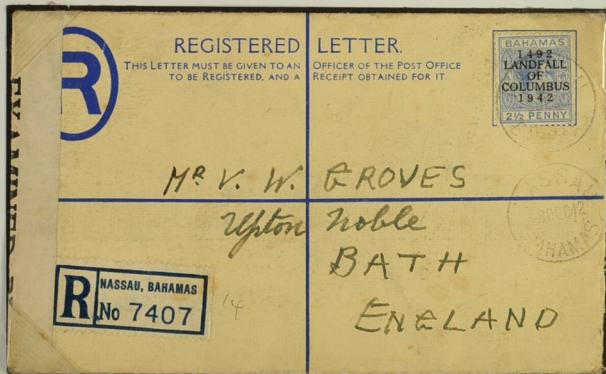 REGISTERED LETTER.
THIS LETTER MUST BE GIVEN TO AN OFFICER OF THE POST OFFICE
TO BE REGISTERED, AND A RECEIPT OBTAINED FOR IT.
R
BAHAMAS
1492
LANDFALL
OF
COLUMBUS
1942
2½ PENNY
EXAMINER
Mr V. W. GROVES
Upton Noble
BATH
ENGLAND
NASSAU
DEC 42
BAHAMAS
R
NASSAU, BAHAMAS
No 7407
14